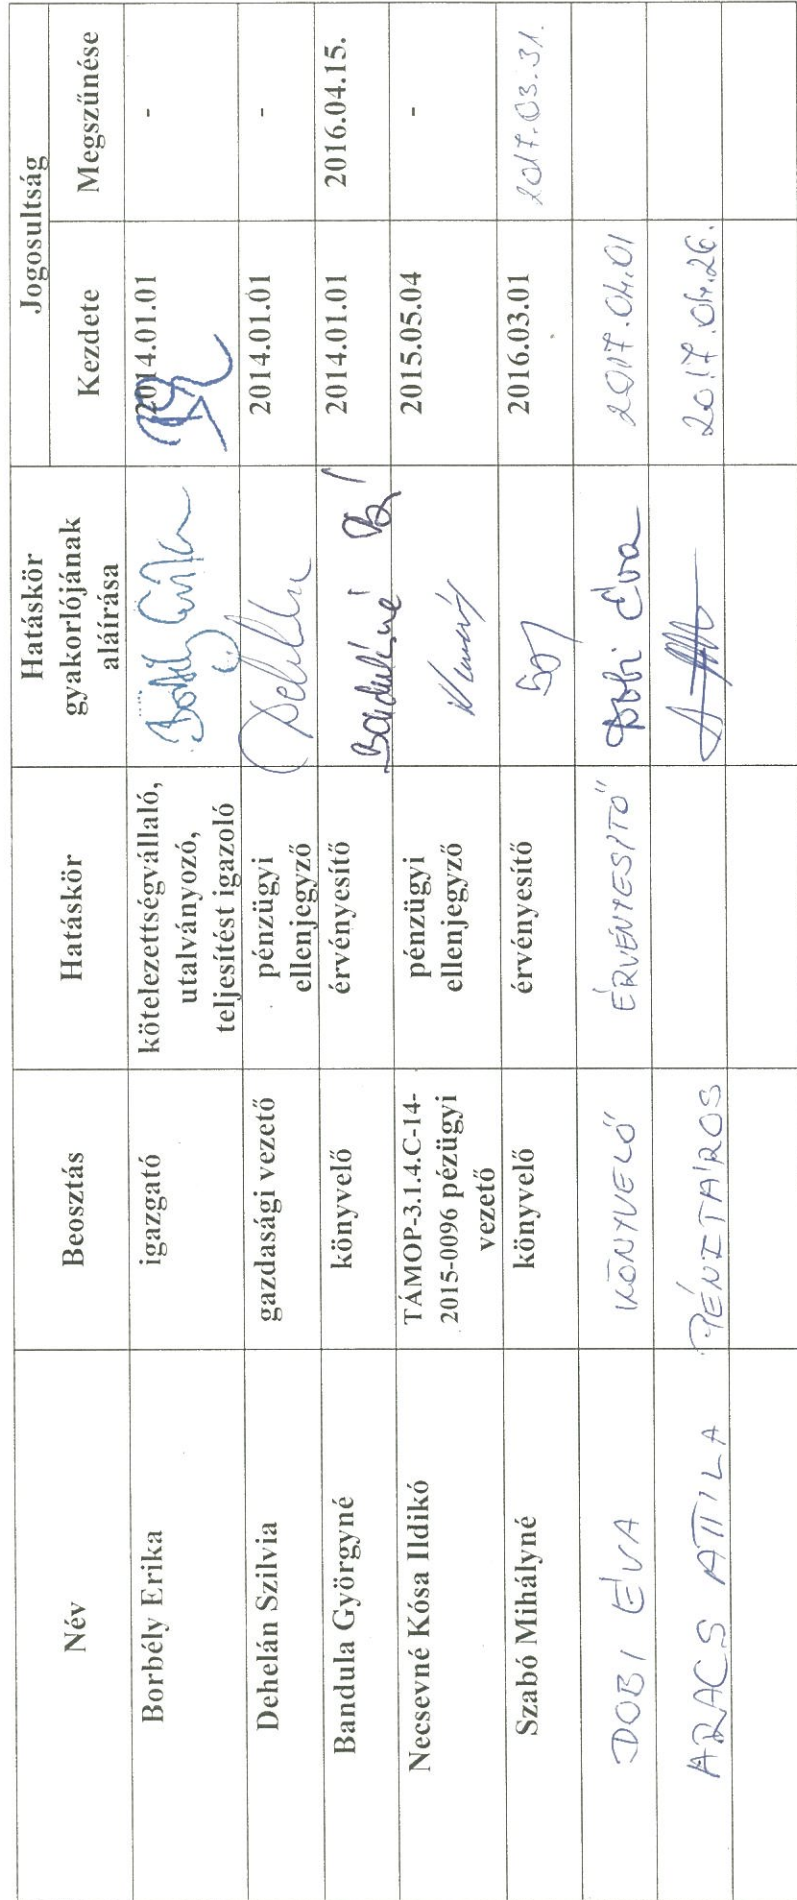 Név Beosztás Hatáskör Hatáskör gyakorlójának aláírása Jogosultság
Kezdete Megszűnése
Borbély Erika igazgató kötelezettségvállaló, 2014.01.01 -
utalványozó,
teljesítést igazoló
Dehelán Szilvia gazdasági vezető pénzügyi 2014.01.01 -
ellenjegyző
Bandula Györgyné könyvelő érvényesítő Banduláné 2014.01.01 2016.04.15.
Necsevné Kósa Ildikó TÁMOP-3.1.4.C-14- pénzügyi 2015.05.04 -
2015-0096 pézügyi ellenjegyző
vezető
Szabó Mihályné könyvelő érvényesítő 2016.03.01 2017.03.31.
DOBI ÉVA KÖNYVELŐ ÉRVÉNYESITŐ Dobi Éva 2017.04.01
ARACS ATTILA PÉNZTÁROS 2017.04.26.